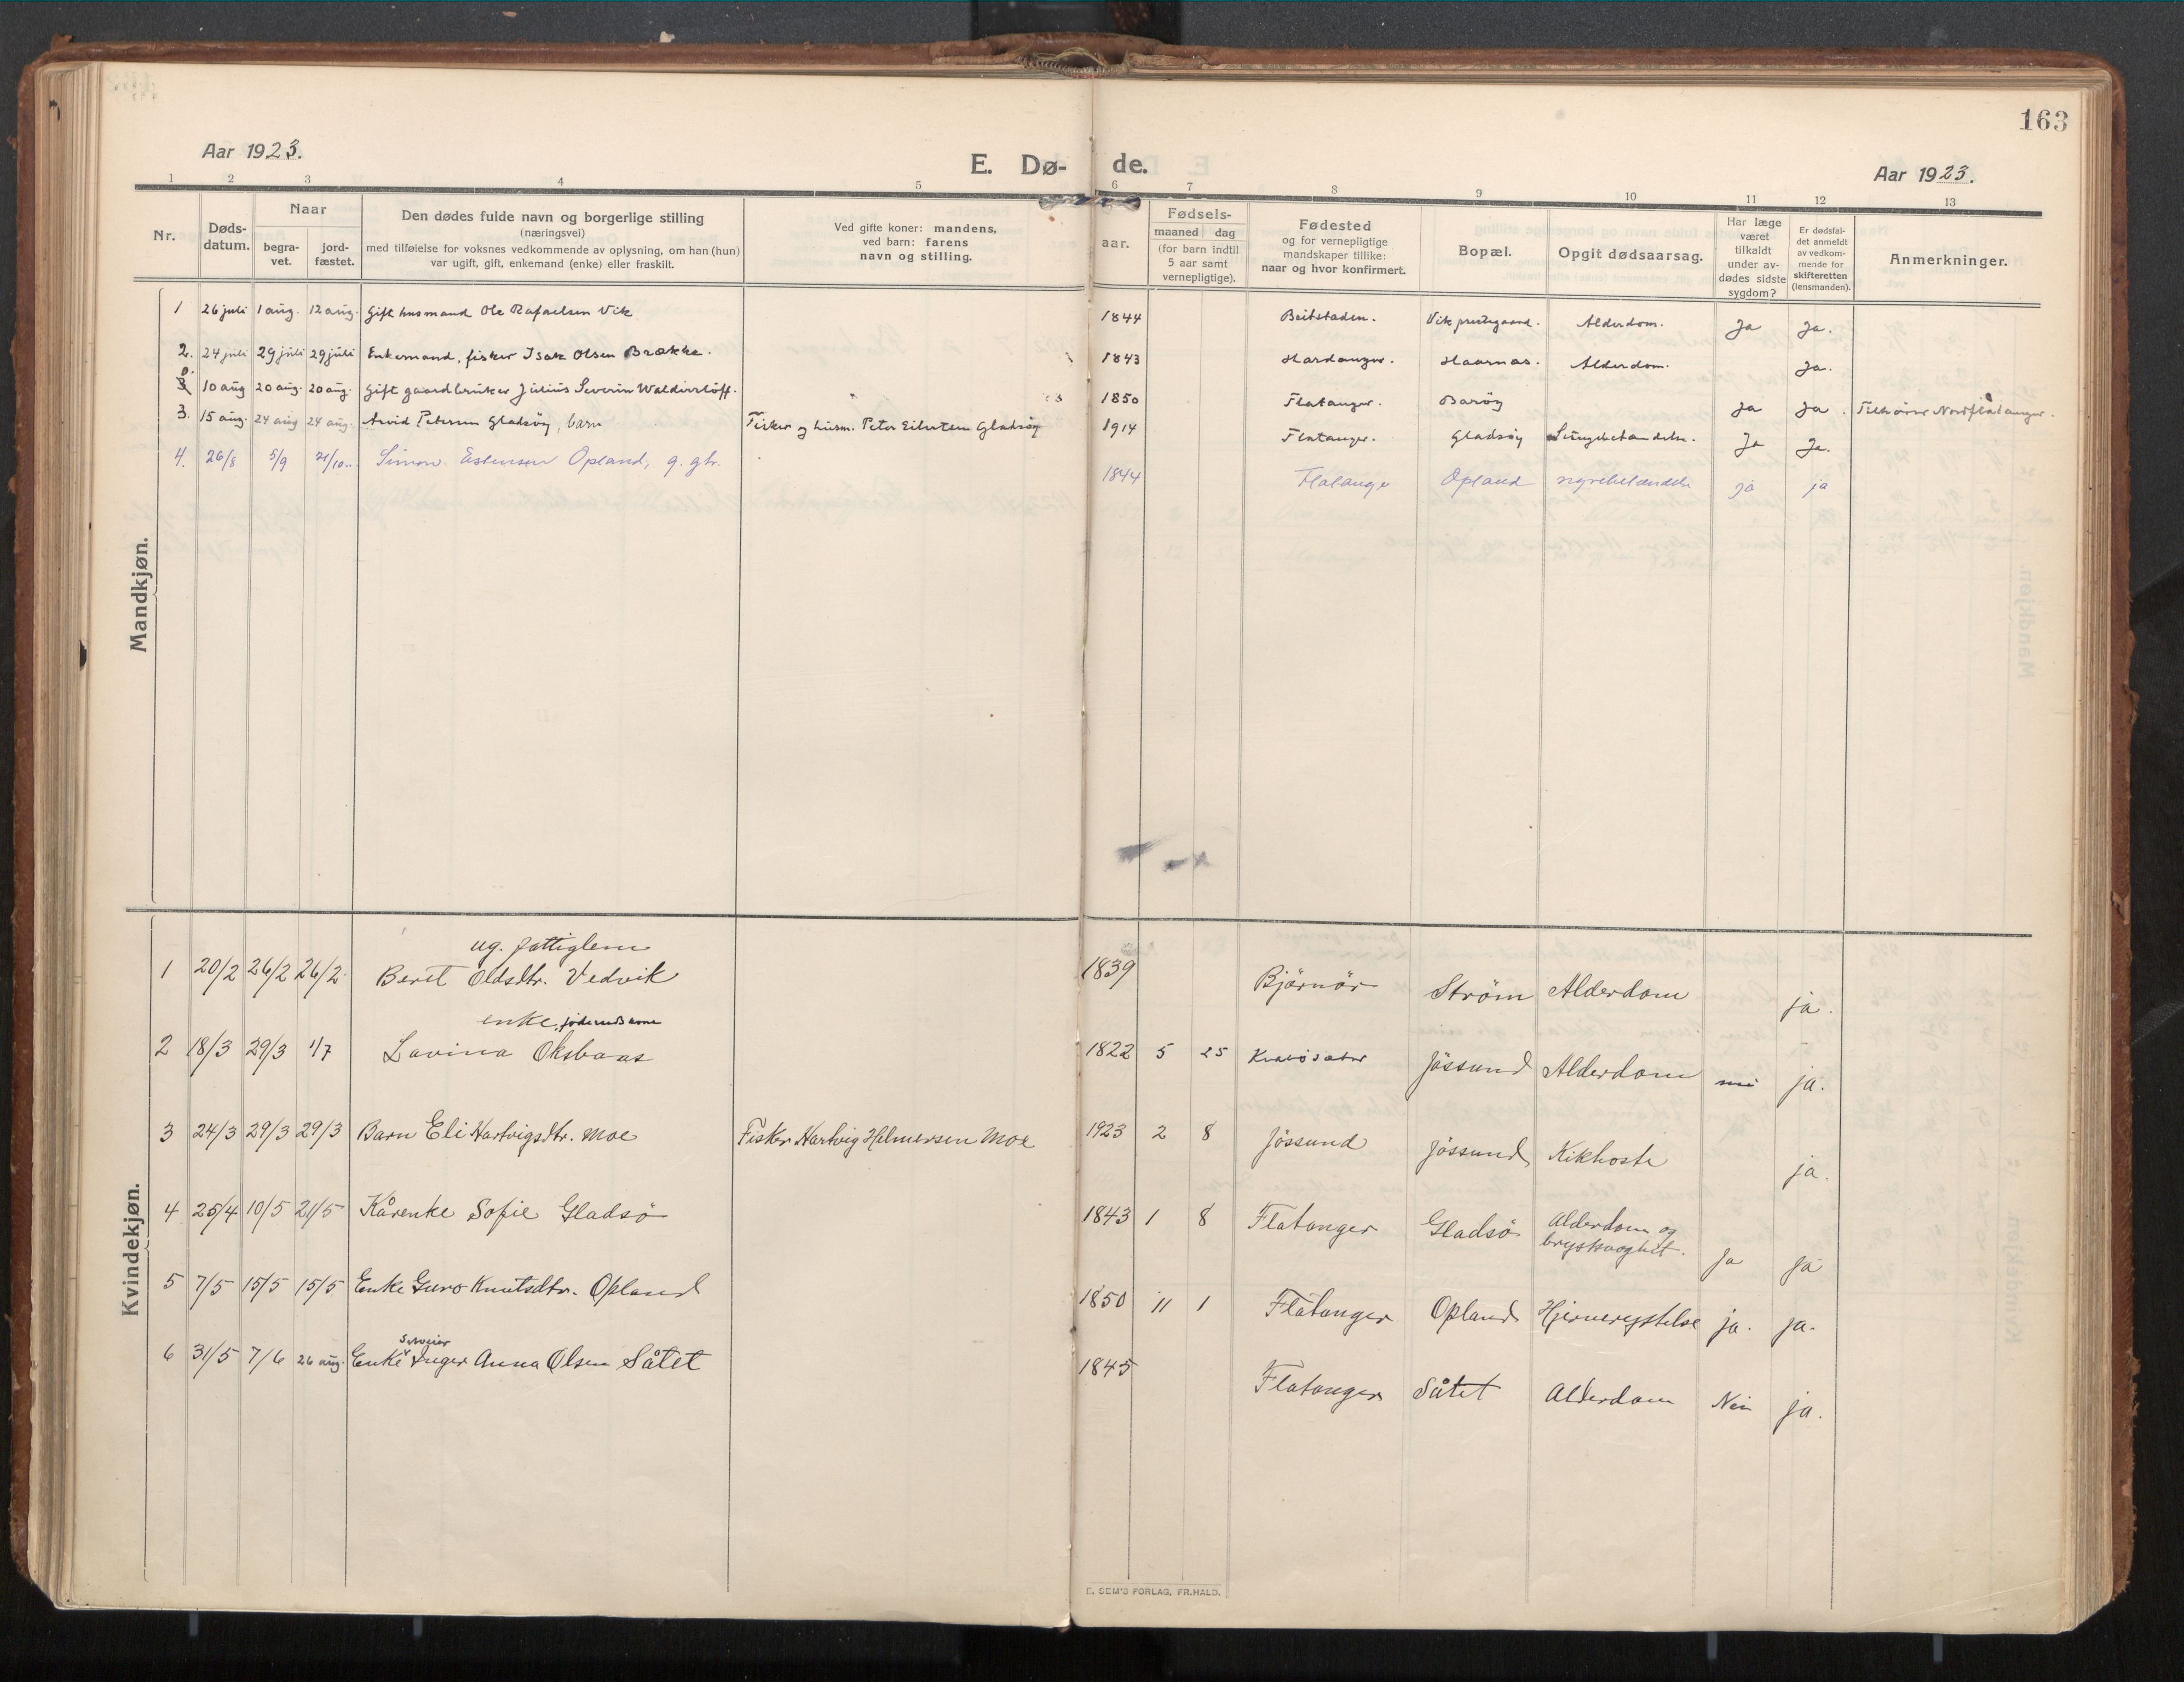 163
Aar 1923.
E. Dø- de.
Aar 1923.
1 2 3 4 5 6 7 8 9 10 11 12 13
Nr.
Døds-
datum.
Naar
begra-
vet.
jord-
fæstet.
Den dødes fulde navn og borgerlige stilling
(næringsvei)
med tilføielse for voksnes vedkommende av oplysning, om han (hun)
var ugift, gift, enkemand (enke) eller fraskilt.
Ved gifte koner: mandens,
ved barn: farens
navn og stilling.
aar.
Fødsels-
maaned dag
(for barn indtil
5 aar samt
vernepligtige).
Fødested
og for vernepligtige
mandskaper tillike:
naar og hvor konfirmert.
Bopæl.
Opgit dødsaarsag.
Har læge
været
tilkaldt
under av-
dødes sidste
sygdom?
Er dødsfal-
det anmeldt
av vedkom-
mende for
skifteretten
(lensmanden).
Anmerkninger.
Mandkjøn.
1 26 juli 1 aug. 12 aug. Gift husmand Ole Rafaelsen Vik 1844 Beitstaden. Vik prestegaard. Alderdom. Ja Ja.
2. 24 juli 29 juli 29 juli Enkemand, fisker Isak Olsen Brække. 1843 Hardanger. Haarnas. Alderdom. Ja.
0. 10 aug 20 aug. 20 aug. Gift gaardbruker Julius Severin Walderslöff. 1850 Flatanger. Barøy Ja Ja. Tilhører Nordflatanger.
3. 15 aug. 24 aug 24 aug. Arvid Petersen Gladsøy, barn Fisker og husm. Peter Eilertsen Gladsøy 1914 Flatanger. Gladsøy Lungebetændelse. Ja Ja.
4. 26/8 5/9 21/10.. Simon Estensen Opland, g. gbr. 1844 Flatanger Opland nyrebetændelse ja ja
Kvindekjøn.
ug. fattiglem
1 20/2 26/2 26/2 Berit Oldsdtr. Vedvik 1839 Bjørnør Strøm Alderdom ja.
enke, føderådskone
2 18/3 29/3 1/7 Lavina Oksbaas 1822 5 25 Jössund Alderdom nei ja.
3 24/3 29/3 29/3 Barn Eli Hartvigsdtr. Moe Fisker Hartvig Hilmersen Moe 1923 2 8 Jössund Jössund Kikhoste ja.
4 25/4 10/5 21/5 Kårenke Sofie Gladsö 1843 1 8 Flatanger Gladsö Alderdom og
brystsvaghet. Ja Ja
5 7/5 15/5 15/5 Enke Guro Knutsdtr. Opland 1850 11 1 Flatanger Opland Hjernerystelse ja. ja.
6 31/5 7/6 26 aug. Enke Inger Anna Olsen Såtet 1845 Flatanger Såtet Alderdom Nei ja.
E. SEM'S FORLAG, FR.HALD.